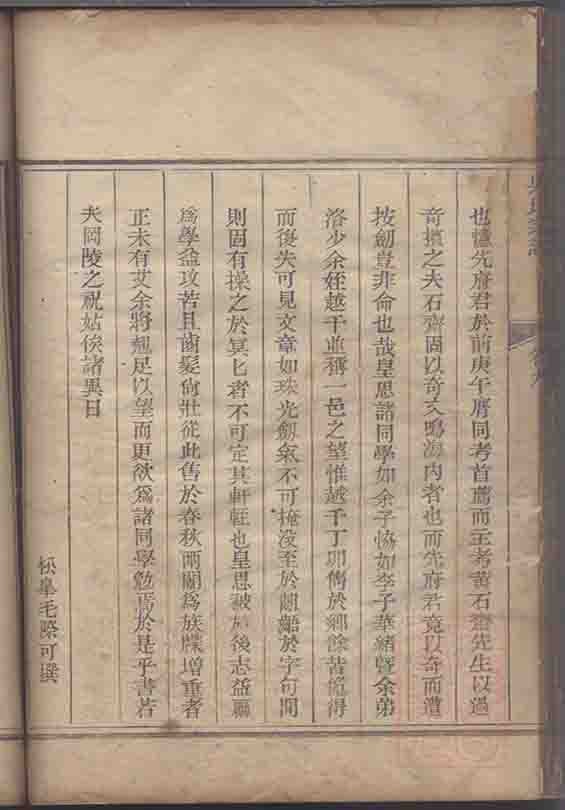 也憶先府君於前庚午膺同考首薦而主考黃石齋先生以過
奇擯之夫石齋固以奇文鳴海內者也而先府君竟以奇而遭
按劒豈非命也哉皇思諸同學如余子恊如李子華緒暨余弟
洛少余姪越千並稱一邑之望惟越千丁卯雋於鄉餘苦得
而復失可見文章如珠光劒氣不可掩没至於齟齬於字句間
則固有操之於冥匕者不可定其軒輊也皇思被於後志益礪
為學益攻苦且齒髮尙壯從此售於春秋兩闈為族牒增重者
正未有艾余將翹足以望而更欲為諸同學勉焉於是乎書若
夫岡陵之祝姑俟諸異日
松皋毛際可撰